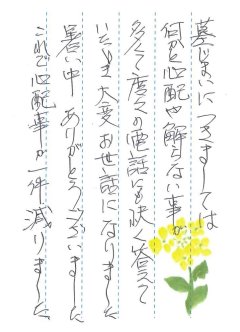 墓じまいにつきましては
何かと心配や解らない事が
多くて度々の電話にも快く答えて
いただき大変お世話になりました
暑い中 ありがとうございました
これで心配事が一件減りました